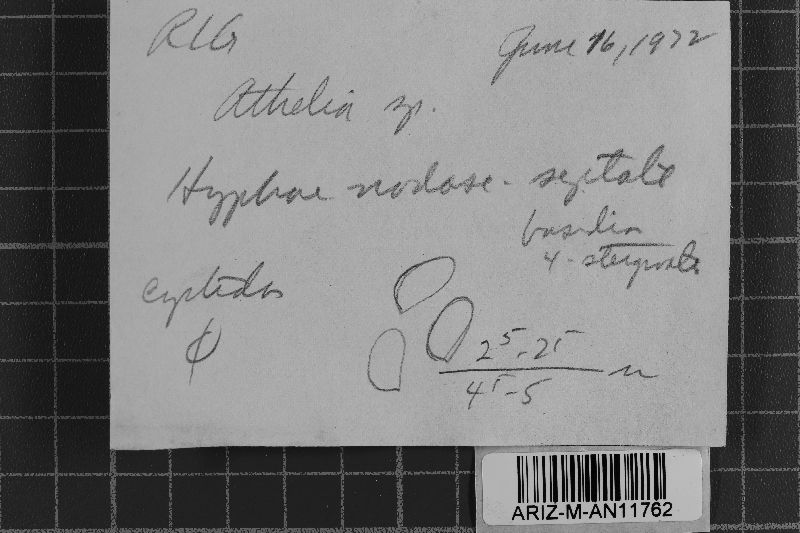 RLG
June 16, 1972
Athelia sp.
Hyphae nodose-septate
basidia
4-sterigmate
cystidia
φ
2⁵-25
4⁵-5 μ
ARIZ-M-AN11762